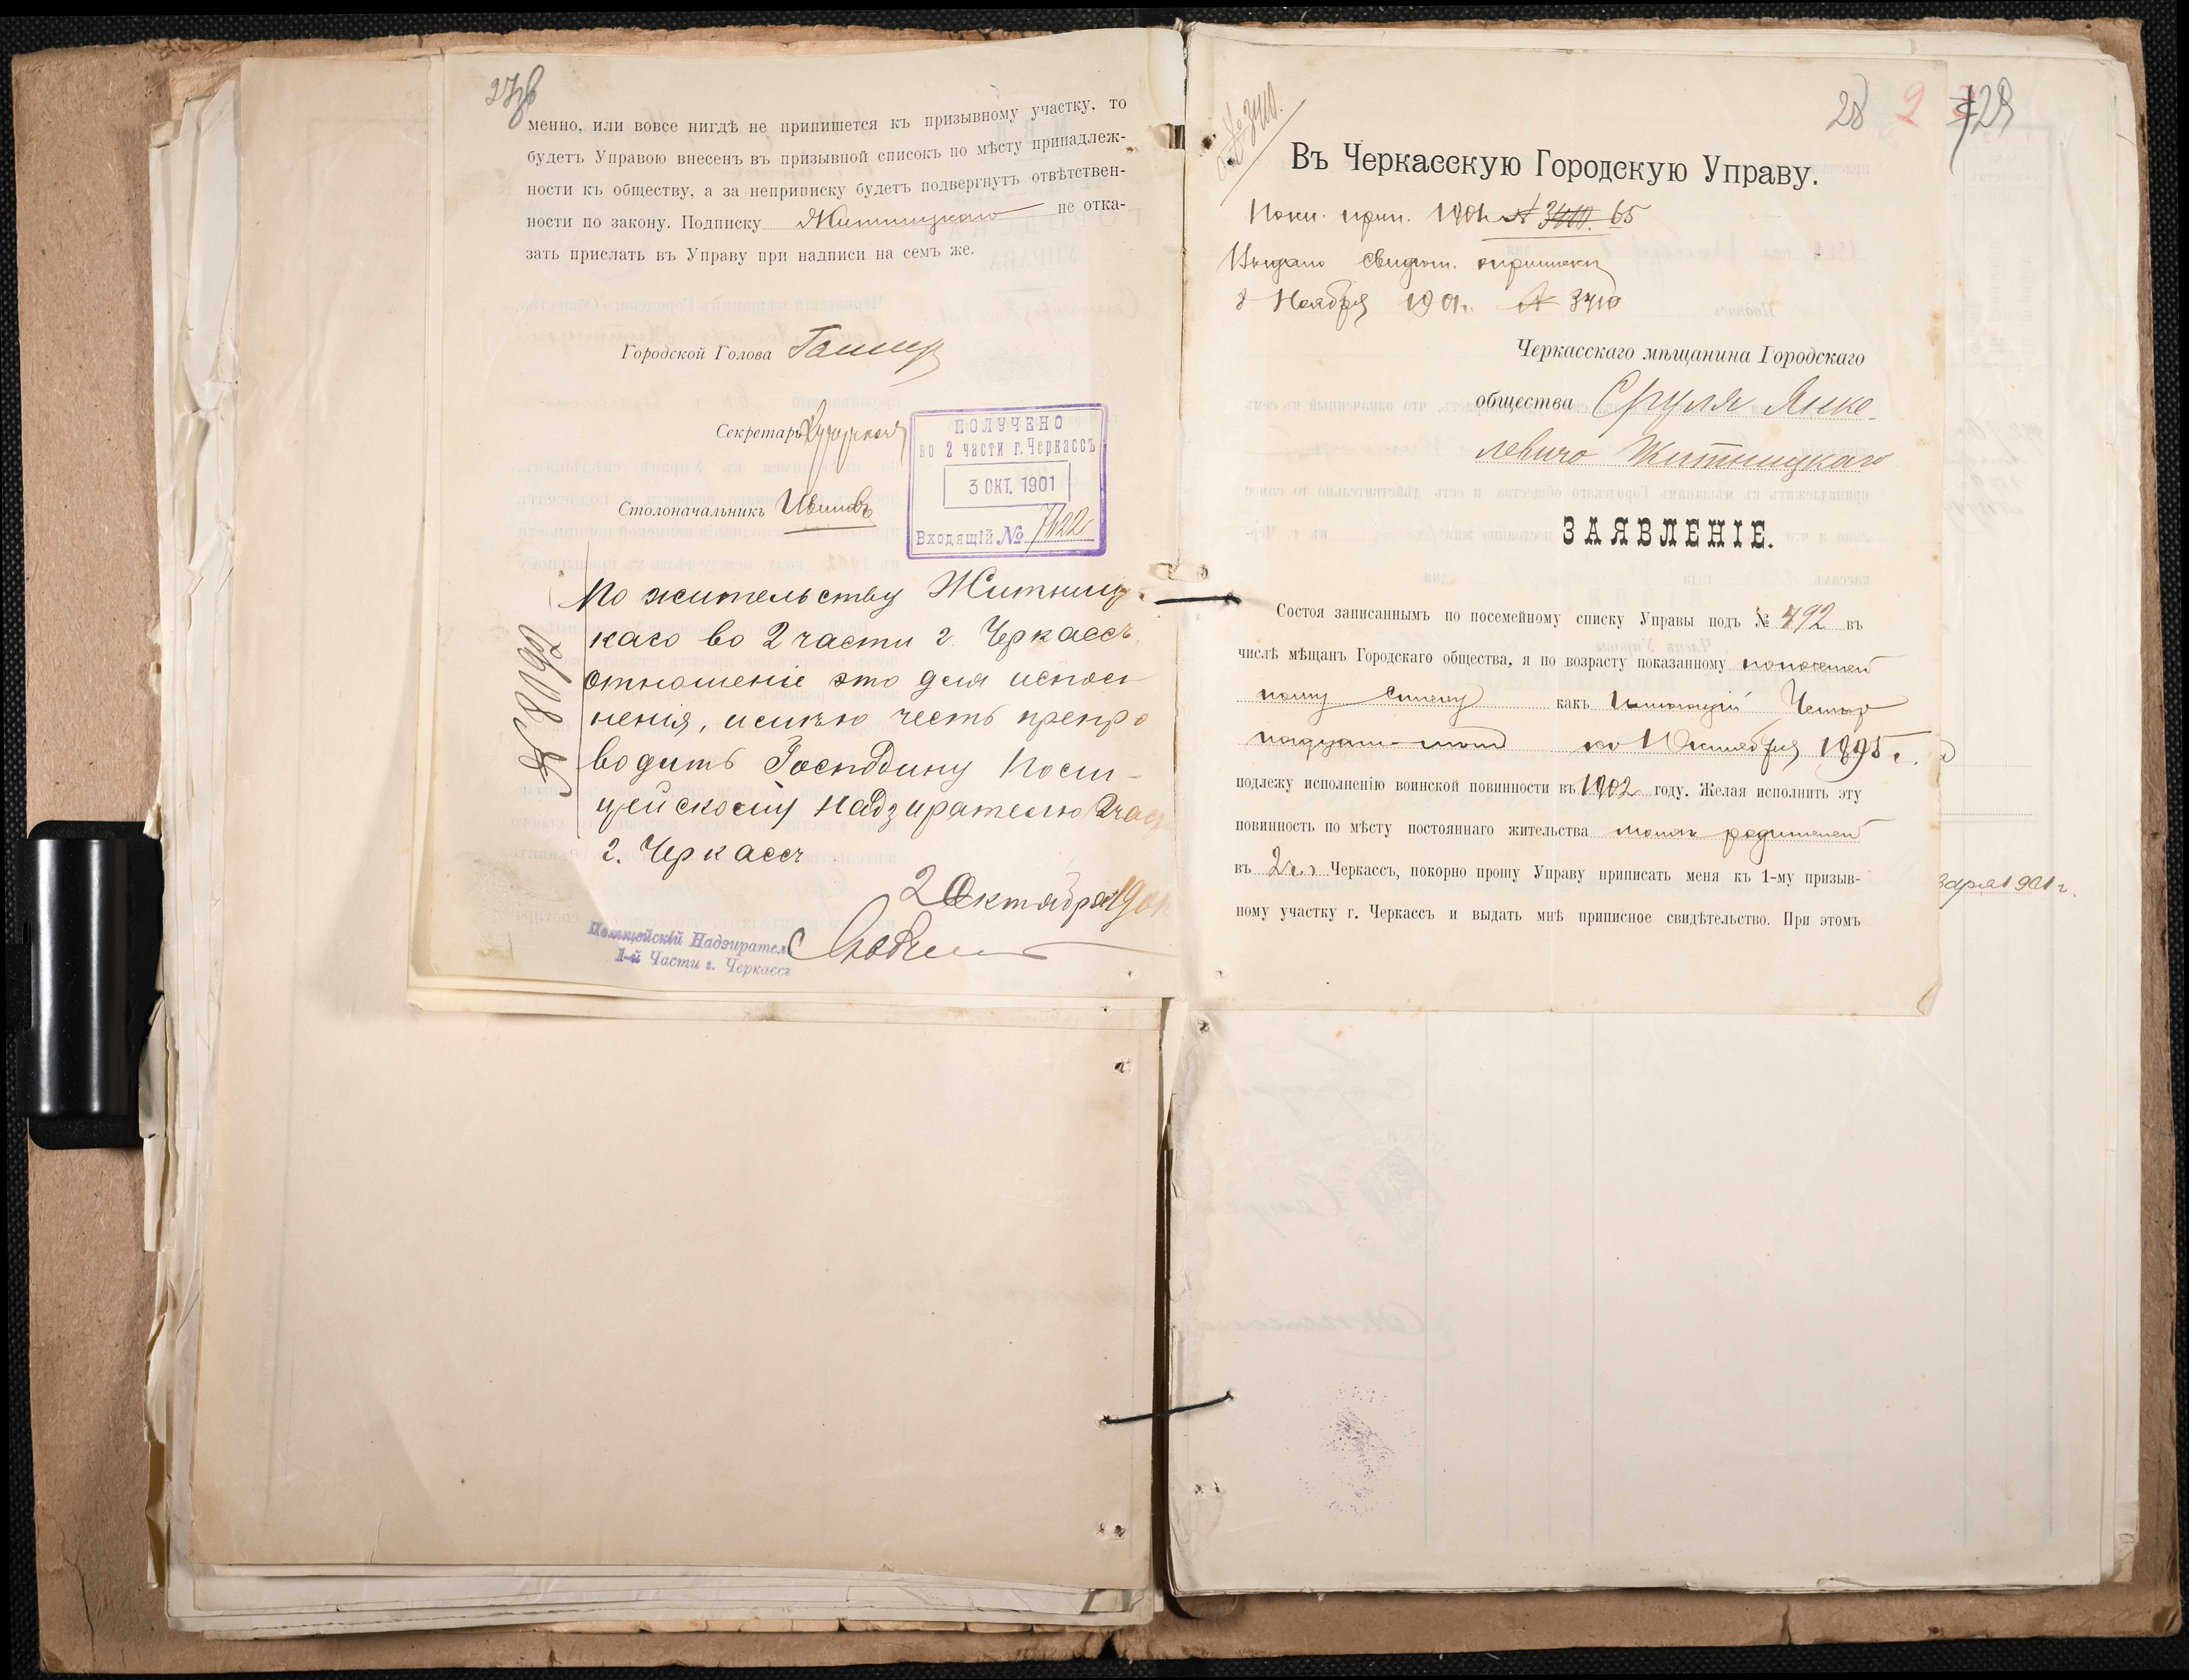 менно, или вовсе нигдѣ не припишется къ призывному участку, то
будетъ Управою внесенъ въ призывной списокъ по мѣсту принадлеж-
ности къ обществу, а за неприписку будетъ подвергнутъ отвѣтствен-
ности по закону. Подписку Житницкаго не отка-
зать прислать въ Управу при надписи на семъ же.
Городской Голова
Секретарь
Столоначальникъ Ивановъ
ПОЛУЧЕНО
во 2 части г. Черкассъ
3 ОКТ. 1901
Входящій № 7622
По жительству Житниц-
каго во 2 части г. Черкассъ
отношеніе это для испол
ненія, имѣю честь препро
водить Господину Поли-
цейскому Надзирателю 2 час
г. Черкассъ
2 Октября 1901
Полицейскій Надзиратель
1-й Части г. Черкассъ
№ 8019
28 9 29
№ 3410.
Въ Черкасскую Городскую Управу.
1901 № 3410. 65
Выдано свидѣт. о припискѣ
8 Ноября 1901 г. № 3410
Черкасскаго мѣщанина Городскаго
общества Сруля Янке-
левича Житницкаго
ЗАЯВЛЕНІЕ.
Состоя записаннымъ по посемейному списку Управы подъ № 492 въ
числѣ мѣщанъ Городскаго общества, я по возрасту показанному по посемей
ному списку какъ имѣющій Четыр
надцать лѣтъ къ 1 Октября 1895 г.
подлежу исполненію воинской повинности въ 1902 году. Желая исполнить эту
повинность по мѣсту постояннаго жительства моихъ родителей
въ 2 ч. г. Черкассъ, покорно прошу Управу приписать меня къ 1-му призыв-
ному участку г. Черкассъ и выдать мнѣ приписное свидѣтельство. При этомъ
1901 г.